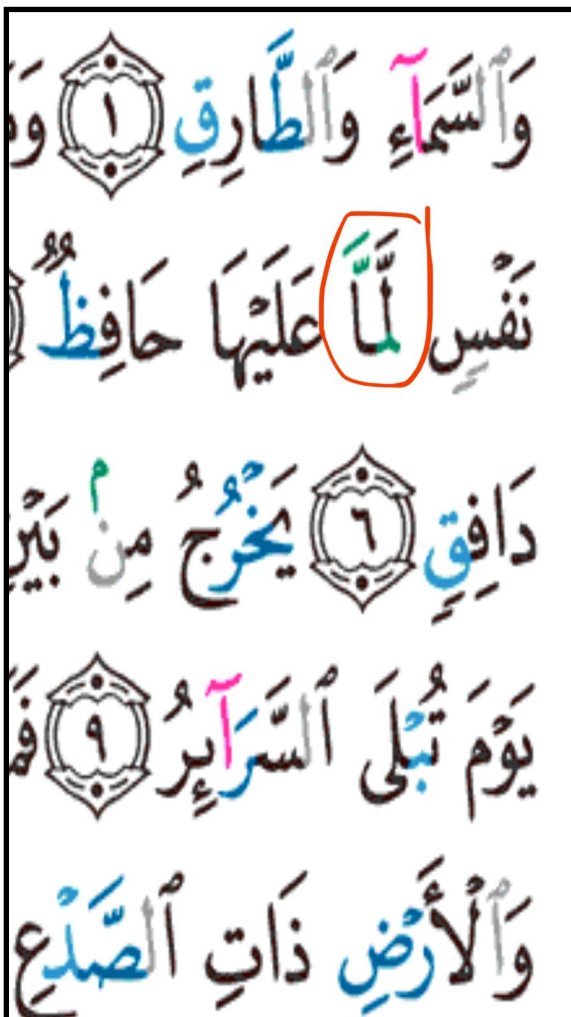 وَٱلسَّمَآءِ وَٱلطَّارِقِ ١
نَفْسٍ لَّمَّا عَلَيْهَا حَافِظٌ
دَافِقٍ ٦ يَخْرُجُ مِنۢ بَيْنِ
يَوْمَ تُبْلَى ٱلسَّرَآئِرُ ٩
وَٱلْأَرْضِ ذَاتِ ٱلصَّدْعِ